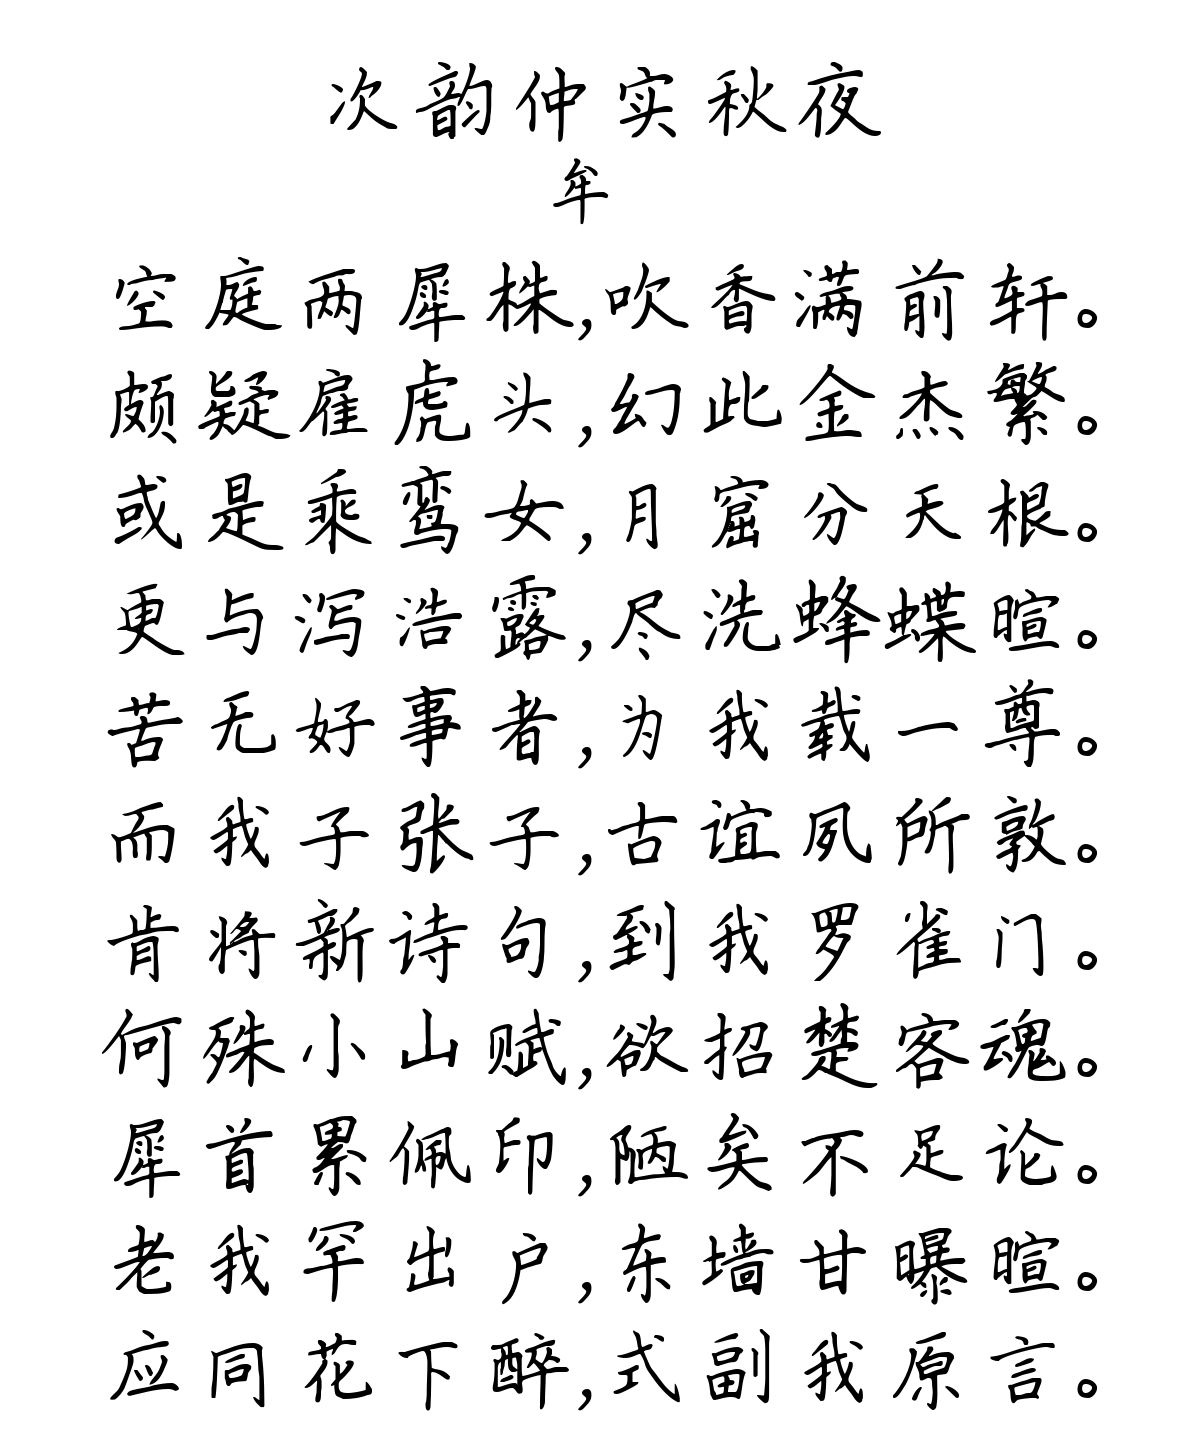 次韵仲实秋夜
牟
空庭两犀株,吹香满前轩。
颇疑雇虎头,幻此金杰繁。
或是乘鸾女,月窟分天根。
更与泻浩露,尽洗蜂蝶暄。
苦无好事者,为我载一尊。
而我子张子,古谊夙所敦。
肯将新诗句,到我罗雀门。
何殊小山赋,欲招楚客魂。
犀首累佩印,陋矣不足论。
老我罕出户,东墙甘曝暄。
应同花下醉,式副我原言。